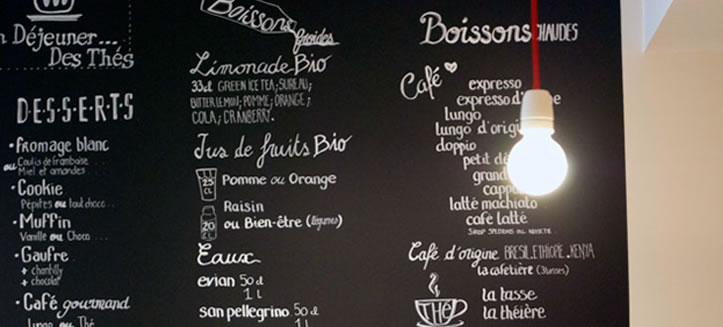 Déjeuner...
Des Thés
DESSERTS
• fromage blanc
ou Coulis de framboise
Miel et amandes
• Cookie
Pépites ou tout choco...
• Muffin
Vanille ou Choco...
• Gaufre
+ chantilly
+ chocolat
• Café gourmand
Lungo ou Thé
Boissons
froides
Limonade Bio
33cl GREEN ICE TEA; SUREAU;
BITTER LEMON; POMME; ORANGE;
COLA; CRANBERRY.
Jus de fruits Bio
25 CL
Pomme ou Orange
20 CL
Raisin
ou Bien-être (légumes)
Eaux
evian 50 cl
1 L
san pellegrino 50 cl
1 L
Boissons CHAUDES
Café
expresso
expresso
lungo
lungo d'origine
doppio
petit
latté machiato
café latté
Café d'origine BRESIL. ETHIOPIE. KENYA
la cafetière (3 tasses)
THÉ
la tasse
la théière